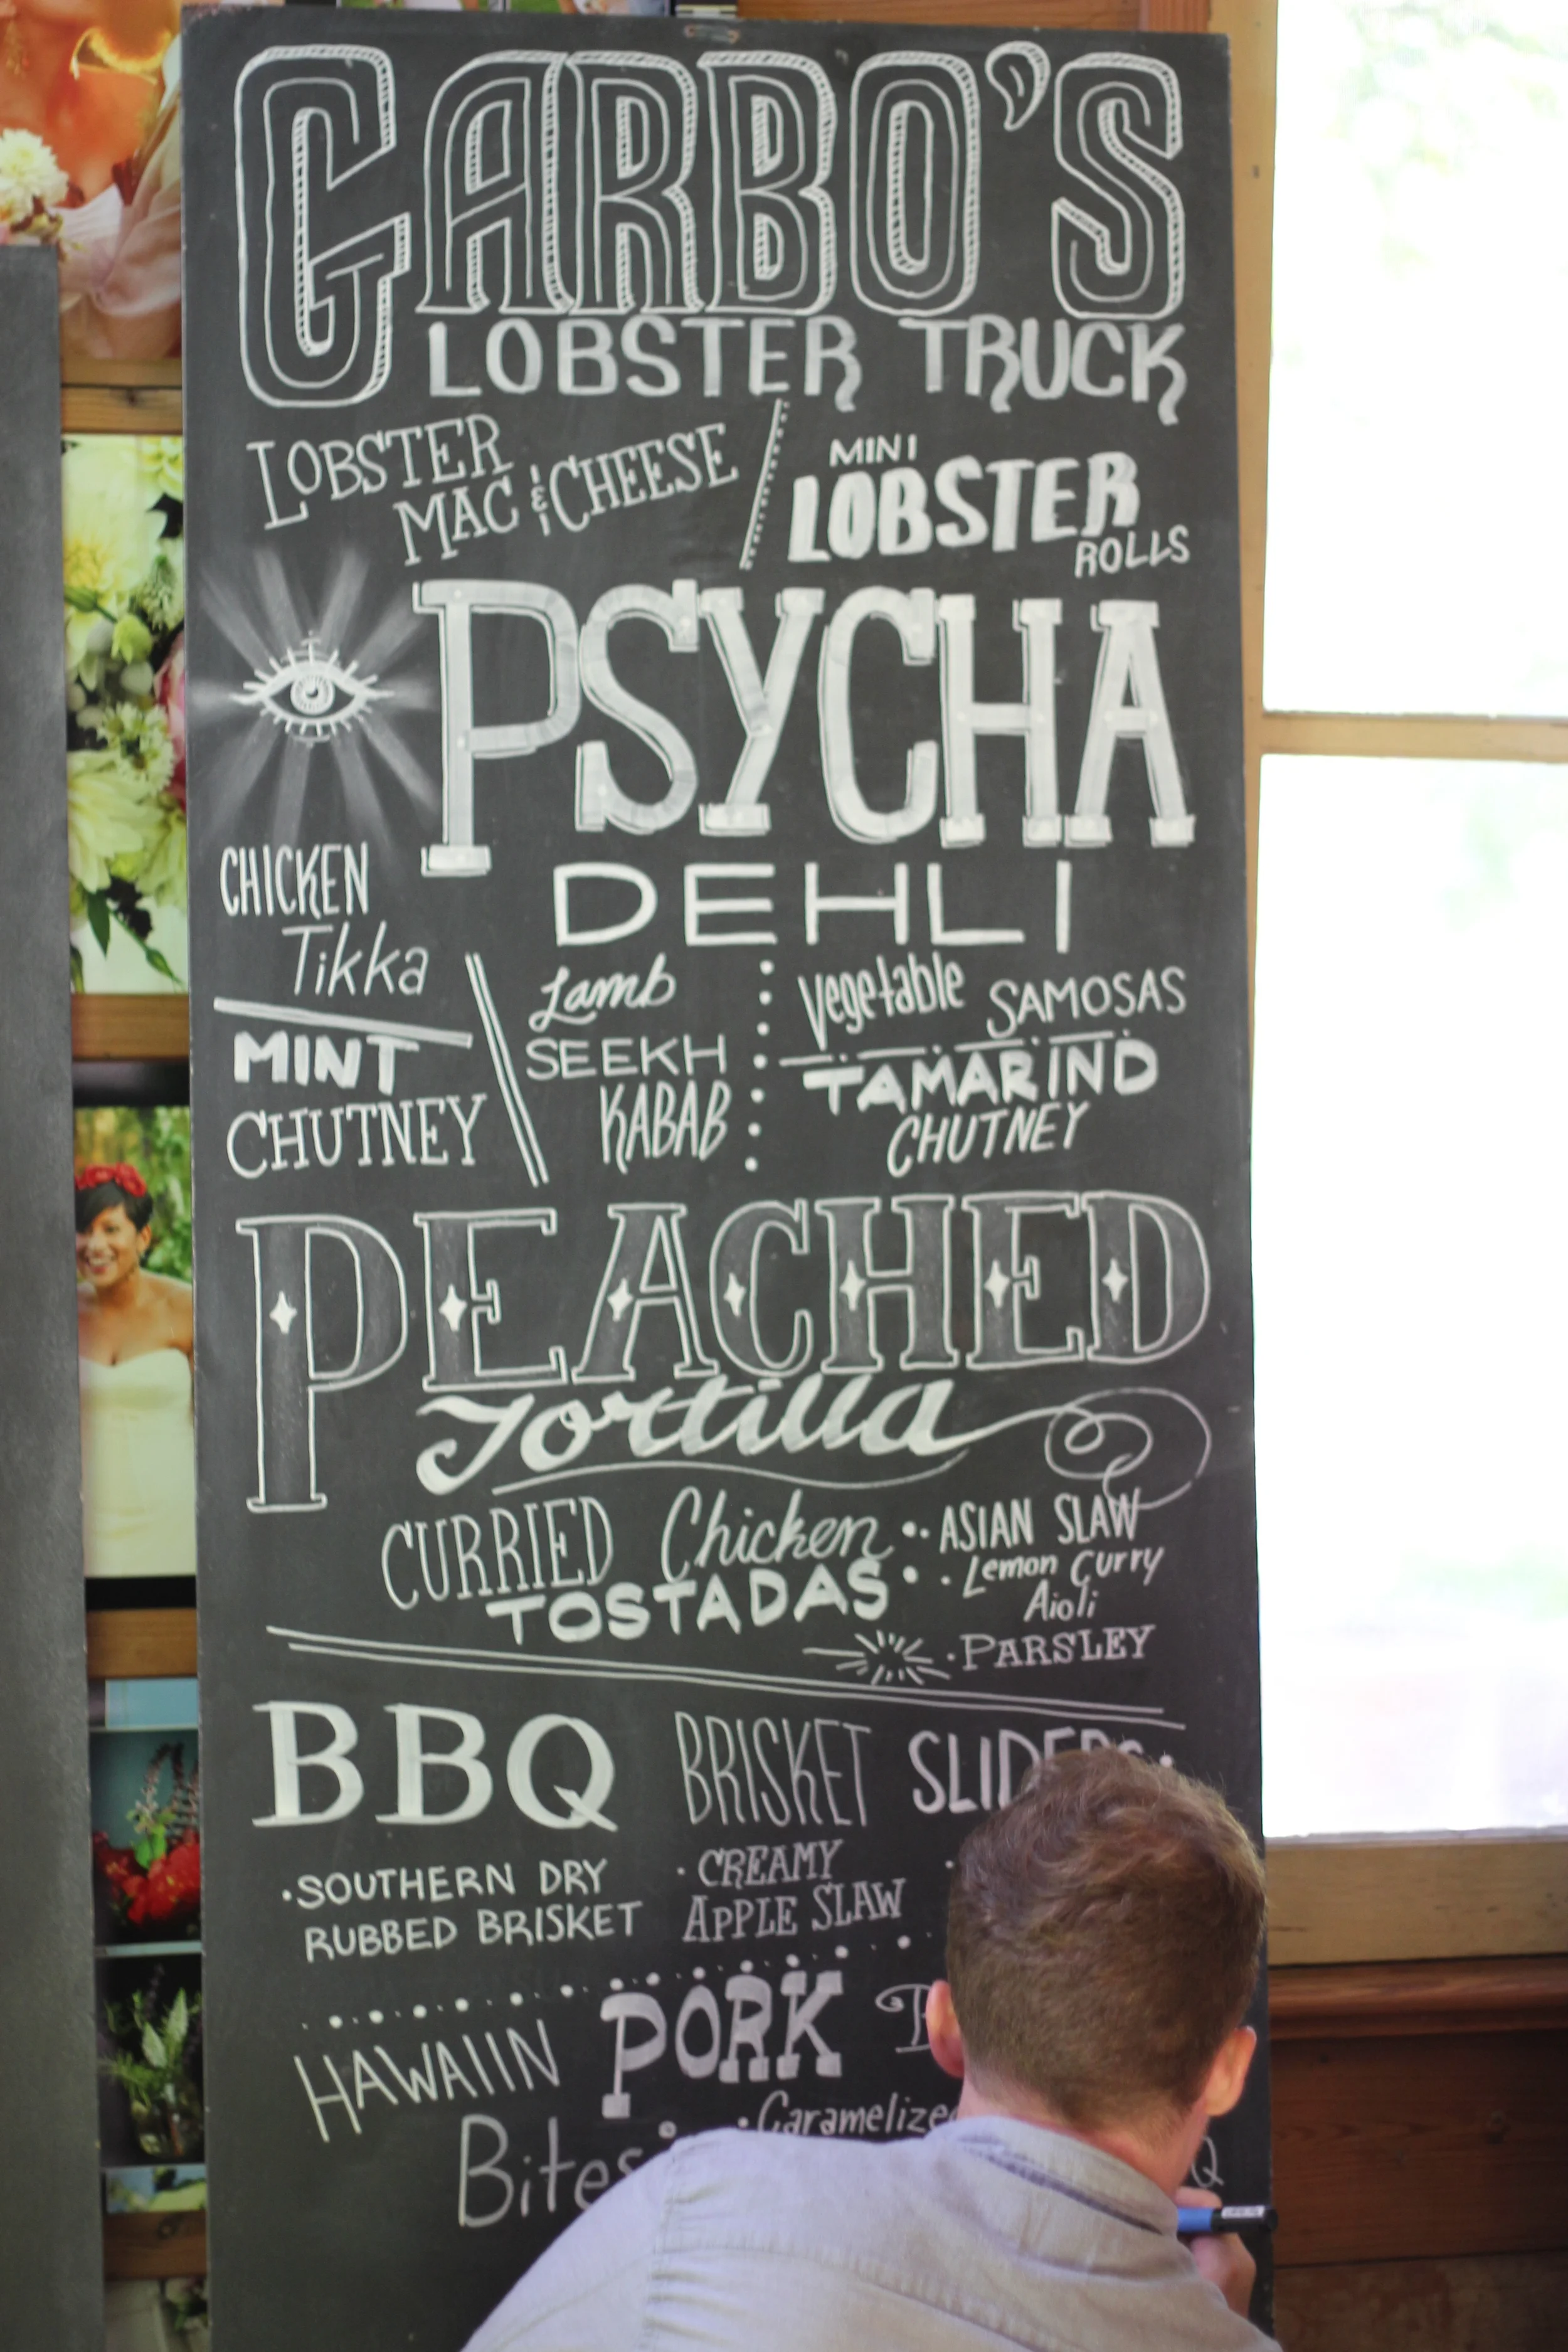 GARBO'S
LOBSTER TRUCK
LOBSTER
MAC & CHEESE
MINI
LOBSTER
ROLLS
PSYCHA
DEHLI
CHICKEN
Tikka
MINT
CHUTNEY
Lamb
SEEKH
KABAB
Vegetable SAMOSAS
TAMARIND
CHUTNEY
PEACHED
Tortilla
CURRIED Chicken
TOSTADAS
· ASIAN SLAW
· Lemon Curry
Aioli
· PARSLEY
BBQ BRISKET SLIDERS
· SOUTHERN DRY
RUBBED BRISKET
· CREAMY
APPLE SLAW
HAWAIIN PORK
Bites
· Caramelized